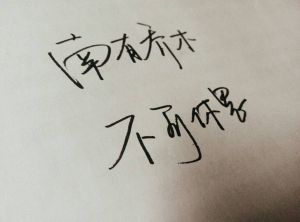 南有乔木
不可休思